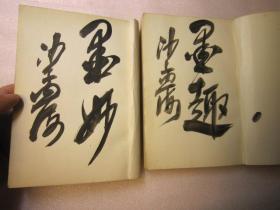 墨妙
沙孟海
墨趣
沙孟海